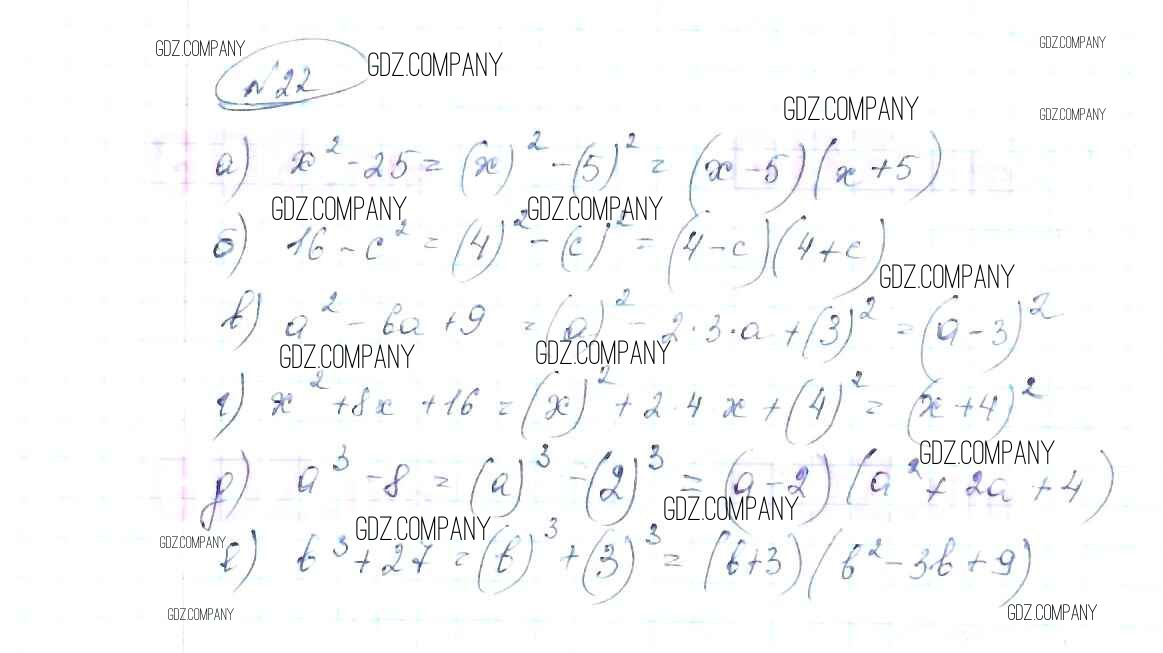 GDZ.COMPANY GDZ.COMPANY GDZ.COMPANY
№ 22
GDZ.COMPANY GDZ.COMPANY
а) x² - 25 = (x)² - (5)² = (x - 5)(x + 5)
GDZ.COMPANY GDZ.COMPANY
б) 16 - c² = (4)² - (c)² = (4 - c)(4 + c)
GDZ.COMPANY
в) a² - 6a + 9 = (a)² - 2·3·a + (3)² = (a - 3)²
GDZ.COMPANY GDZ.COMPANY
г) x² + 8x + 16 = (x)² + 2·4 x + (4)² = (x + 4)²
GDZ.COMPANY
д) a³ - 8 = (a)³ - (2)³ = (a - 2)(a² + 2a + 4)
GDZ.COMPANY GDZ.COMPANY
GDZ.COMPANY
е) b³ + 27 = (b)³ + (3)³ = (b + 3)(b² - 3b + 9)
GDZ.COMPANY GDZ.COMPANY